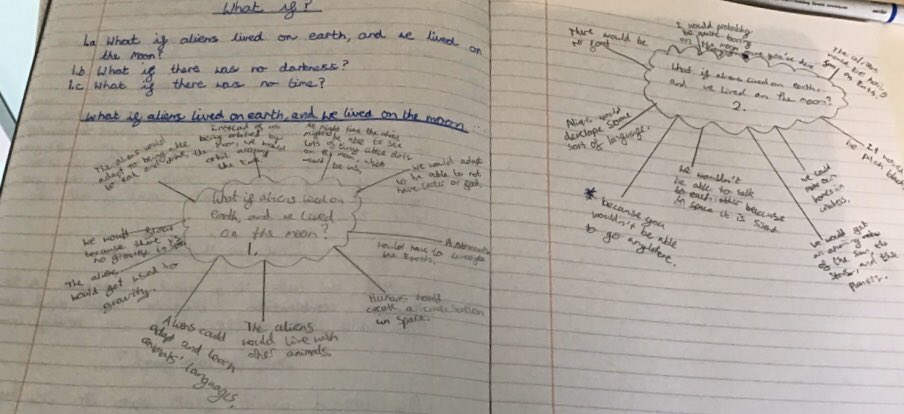 What if?
1.a What if aliens lived on earth, and we lived on
the moon?
1.b What if there was no darkness?
1.c What if there was no time?
What if aliens lived on earth, and we lived on the moon
The aliens would
adapt to being able
to eat and drink.
Instead of us
being orbited by
the moon, we would
orbit around
the Earth.
At night time the aliens
might be able to see
lots of tiny little dots
on the moon, which
would be us.
We would adapt
to be able to not
have water or food.
What if aliens lived on
earth, and we lived
on the moon?
1.
We would float
because there is
no gravity
The aliens
would get used to
gravity.
Aliens could
adapt and learn
animals' languages.
The aliens
would live with
other animals.
Humans would
create a civilisation
in space.
Astronauts
would have to
the Earth.
There would be
no food
I would probably
be quite boring
on the moon
The aliens
would be
on Earth.
What if aliens lived on earth,
and we lived on the moon?
2.
Aliens would
develope some
sort of language.
It would
be pitch black
* because you
wouldn't be able
to go anywhere.
We wouldn't
be able to talk
to each other because
in space it is silent
We could
make our
homes in
craters.
We would get
an amazing view
of the sun, the
stars, and the
planets.